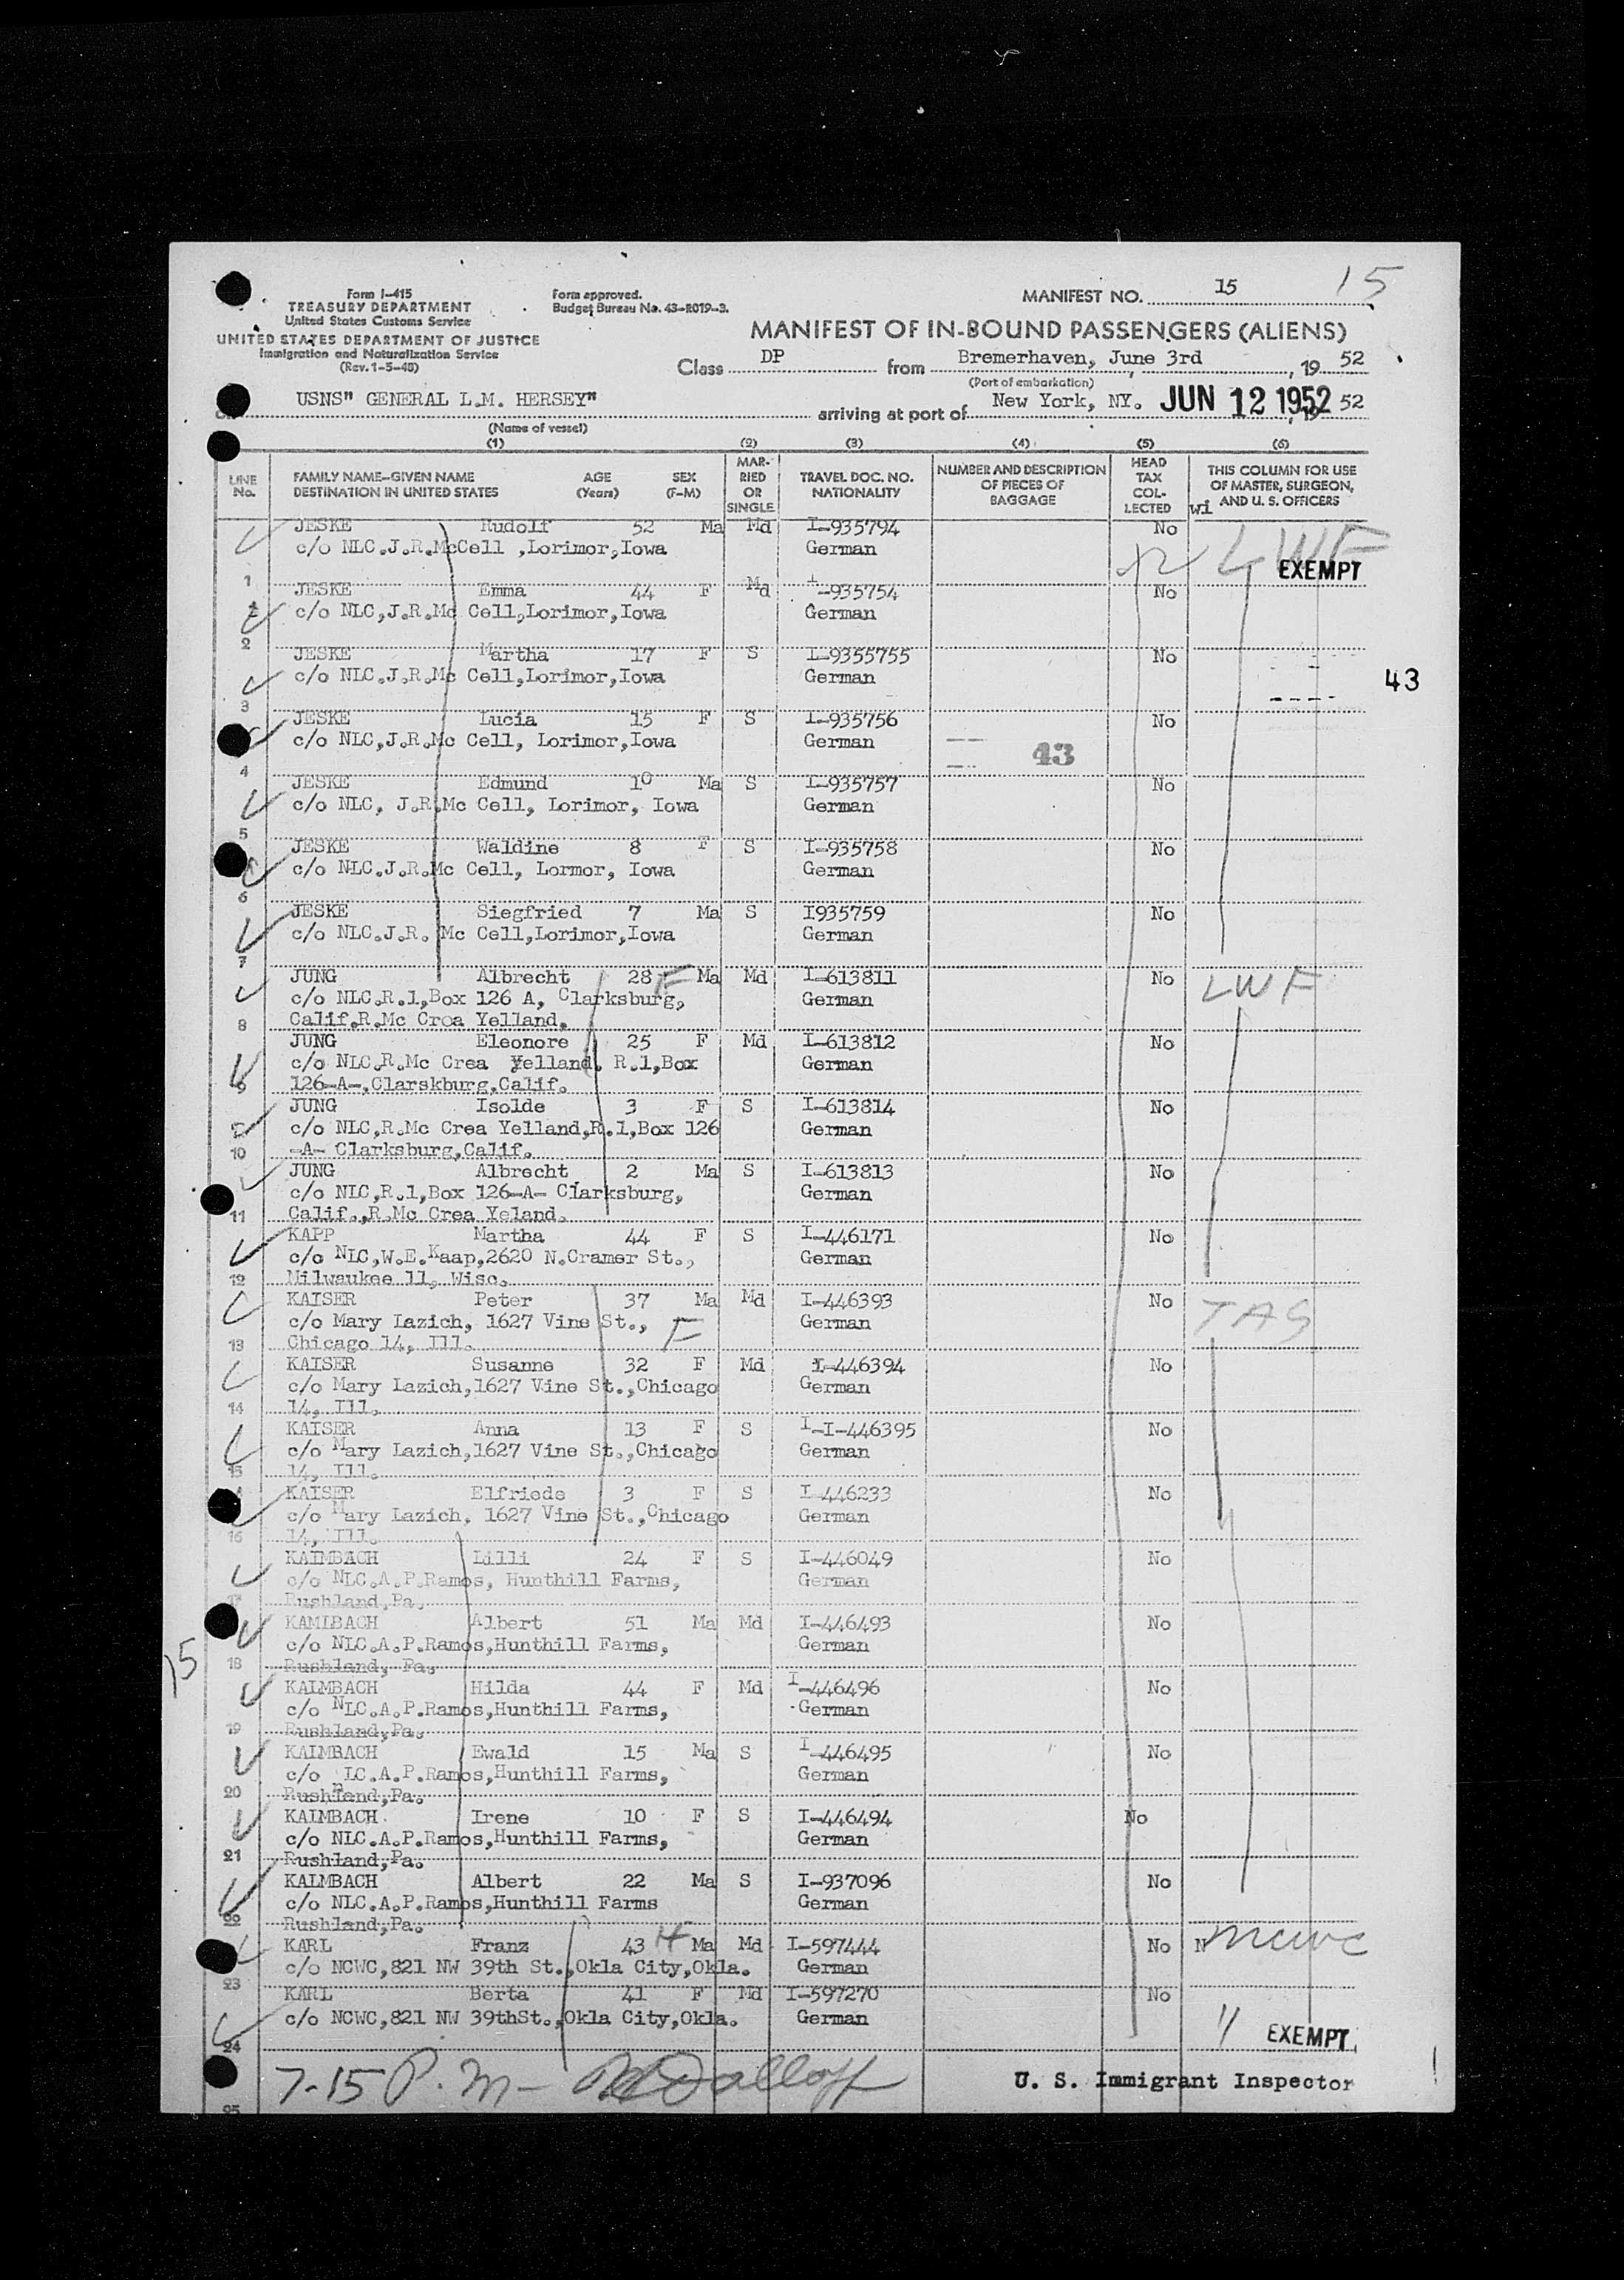 Form I-415
TREASURY DEPARTMENT
United States Customs Service
UNITED STATES DEPARTMENT OF JUSTICE
Immigration and Naturalization Service
(Rev. 1-5-48)
Form approved.
Budget Bureau No. 43-R019-3.
MANIFEST NO. 15 15
MANIFEST OF IN-BOUND PASSENGERS (ALIENS)
Class DP from Bremerhaven, June 3rd, 19 52
(Port of embarkation)
USNS" GENERAL L.M. HERSEY" arriving at port of New York, NY. JUN 12 1952, 19 52
(Name of vessel)
(1) (2) (3) (4) (5) (6)
LINE No. FAMILY NAME-GIVEN NAME DESTINATION IN UNITED STATES AGE (Years) SEX (F-M) MAR-RIED OR SINGLE TRAVEL DOC. NO. NATIONALITY NUMBER AND DESCRIPTION OF PIECES OF BAGGAGE HEAD TAX COL-LECTED THIS COLUMN FOR USE OF MASTER, SURGEON, AND U. S. OFFICERS
wi
JESKE Rudolf 52 Ma Md I-935794 No LWF
c/o NLC.J.R.McCell ,Lorimor,Iowa German
EXEMPT
1
JESKE Emma 44 F Md I-935754 No
c/o NLC,J.R.Mc Cell,Lorimor,Iowa German
2
JESKE Martha 17 F S I-9355755 No
c/o NLC.J.R.Mc Cell,Lorimor,Iowa German
43
3
JESKE Lucia 15 F S I-935756 No
c/o NLC,J.R.Mc Cell, Lorimor,Iowa German
43
4
JESKE Edmund 10 Ma S I-935757 No
c/o NLC, J.R.Mc Cell, Lorimor, Iowa German
5
JESKE Waldine 8 F S I-935758 No
c/o NLC.J.R.Mc Cell, Lormor, Iowa German
6
JESKE Siegfried 7 Ma S I935759 No
c/o NLC.J.R. Mc Cell,Lorimor,Iowa German
7
JUNG Albrecht 28 F Ma Md I-613811 No LWF
c/o NLC.R.1,Box 126 A, Clarksburg, German
8 Calif.R.Mc Croa Yelland.
JUNG Eleonore 25 F Md I-613812 No
c/o NLC.R.Mc Crea Yelland. R.1,Box German
9 126-A-.Clarskburg.Calif.
JUNG Isolde 3 F S I-613814 No
c/o NLC,R.Mc Crea Yelland,R.1,Box 126 German
10 -A- Clarksburg,Calif.
JUNG Albrecht 2 Ma S I-613813 No
c/o NLC,R.1,Box 126-A- Clarksburg, German
11 Calif.,R.Mc Crea Yeland.
KAPP Martha 44 F S I-446171 No
c/o NLC,W.E.Kaap,2620 N.Cramer St., German
12 Milwaukee 11, Wisc.
KAISER Peter 37 Ma Md I-446393 No TAG
c/o Mary Lazich, 1627 Vine St., F German
13 Chicago 14, Ill.
KAISER Susanne 32 F Md I-446394 No
c/o Mary Lazich,1627 Vine St.,Chicago German
14 14, Ill.
KAISER Anna 13 F S I-I-446395 No
c/o Mary Lazich,1627 Vine St.,Chicago German
15 14, Ill.
KAISER Elfriede 3 F S I-446233 No
c/o Mary Lazich, 1627 Vine St.,Chicago German
16 14, Ill.
KAIMBACH Lilli 24 F S I-446049 No
c/o NLC.A.P.Ramos, Hunthill Farms, German
17 Rushland,Pa.
KAMLBACH Albert 51 Ma Md I-446493 No
c/o NLC.A.P.Ramos,Hunthill Farms, German
15
18 Rushland, Pa.
KALMBACH Hilda 44 F Md I-446496 No
c/o NLC.A.P.Ramos,Hunthill Farms, German
19 Rushland,Pa.
KALMBACH Ewald 15 Ma S I-446495 No
c/o LC.A.P.Ramos,Hunthill Farms, German
20 Rushland,Pa.
KALMBACH Irene 10 F S I-446494 No
c/o NLC.A.P.Ramos,Hunthill Farms, German
21 Rushland,Pa.
KALMBACH Albert 22 Ma S I-937096 No
c/o NLC.A.P.Ramos,Hunthill Farms German
22 Rushland,Pa.
KARL Franz 43 Ma Md I-597444 No N ncwc
c/o NCWC,821 NW 39th St.,Okla City,Okla. German
23
KARL Berta 41 F Md I-597270 No
c/o NCWC,821 NW 39thSt.,Okla City,Okla. German
" EXEMPT
24
7-15 P.M-
U. S. Immigrant Inspector
25